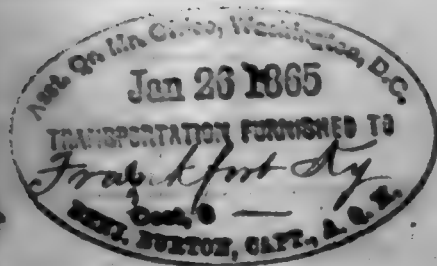 Asst. Qr. Mr. Office, Washington, D.C.
Jan 26 1865
TRANSPORTATION FURNISHED TO
Frankfort Ky
Cost, $ —
BENJ. BURTON, CAPT., A. Q. M.